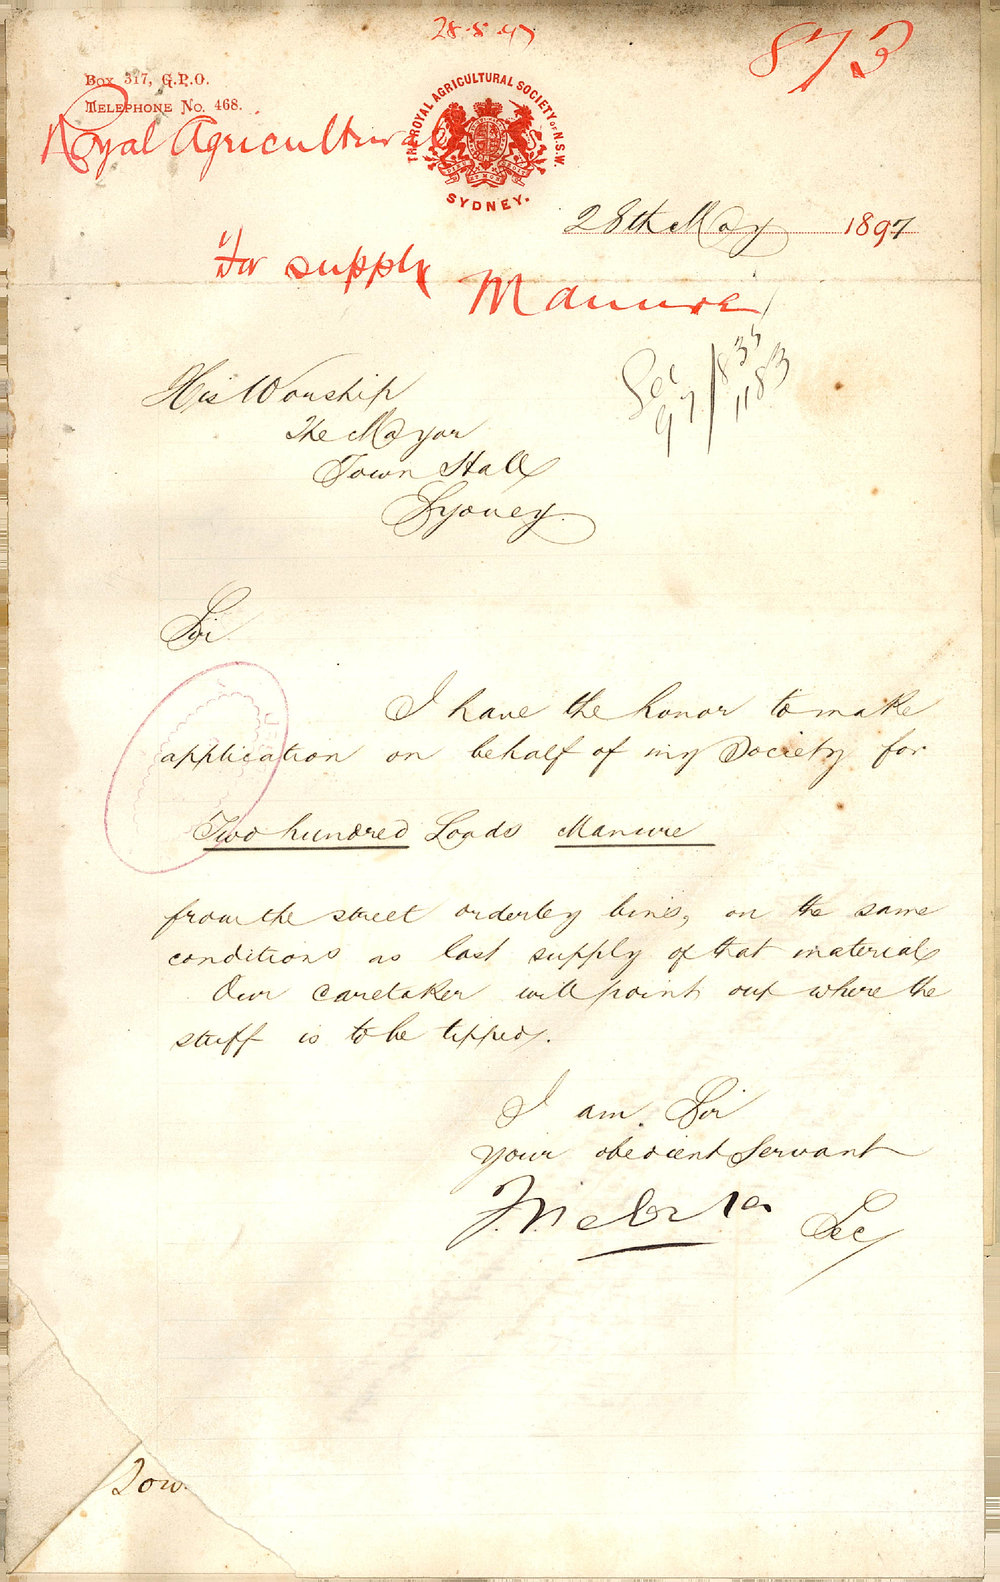 28.5.97
873
Box 317, G.P.O.
Telephone No. 468.
Royal Agricultural
THE ROYAL AGRICULTURAL SOCIETY OF N.S.W.
SYDNEY.
28th May 1897
For supply
Manure
See
97/835
1183
His Worship
The Mayor
Town Hall
Sydney.
Sir
I have the honor to make
application on behalf of my Society for
Two hundred Loads Manure
from the street orderley bins, on the same
conditions as last supply of that material
Our caretaker will point out where the
stuff is to be tipped.
I am, Sir
your obedient Servant
F. Webster Sec
Tow